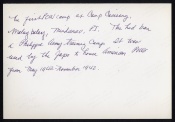 The first POW Camp at Camp Casisang,
Malaybalay, Mindanao, P.I. This had been
a Philippine Army Training Camp. It was
used by the Japs to house American POWs
from May 1942 - November 1942.